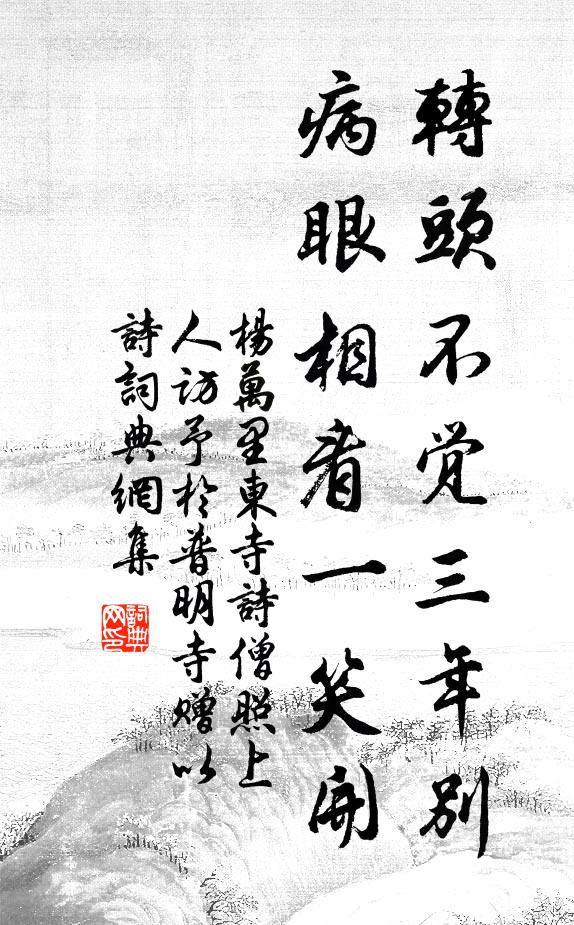 轉頭不覺三年別
病眼相看一笑開
楊萬里東寺詩僧照上
人訪予於普明寺贈以
詩詞典網集
詞典
网印